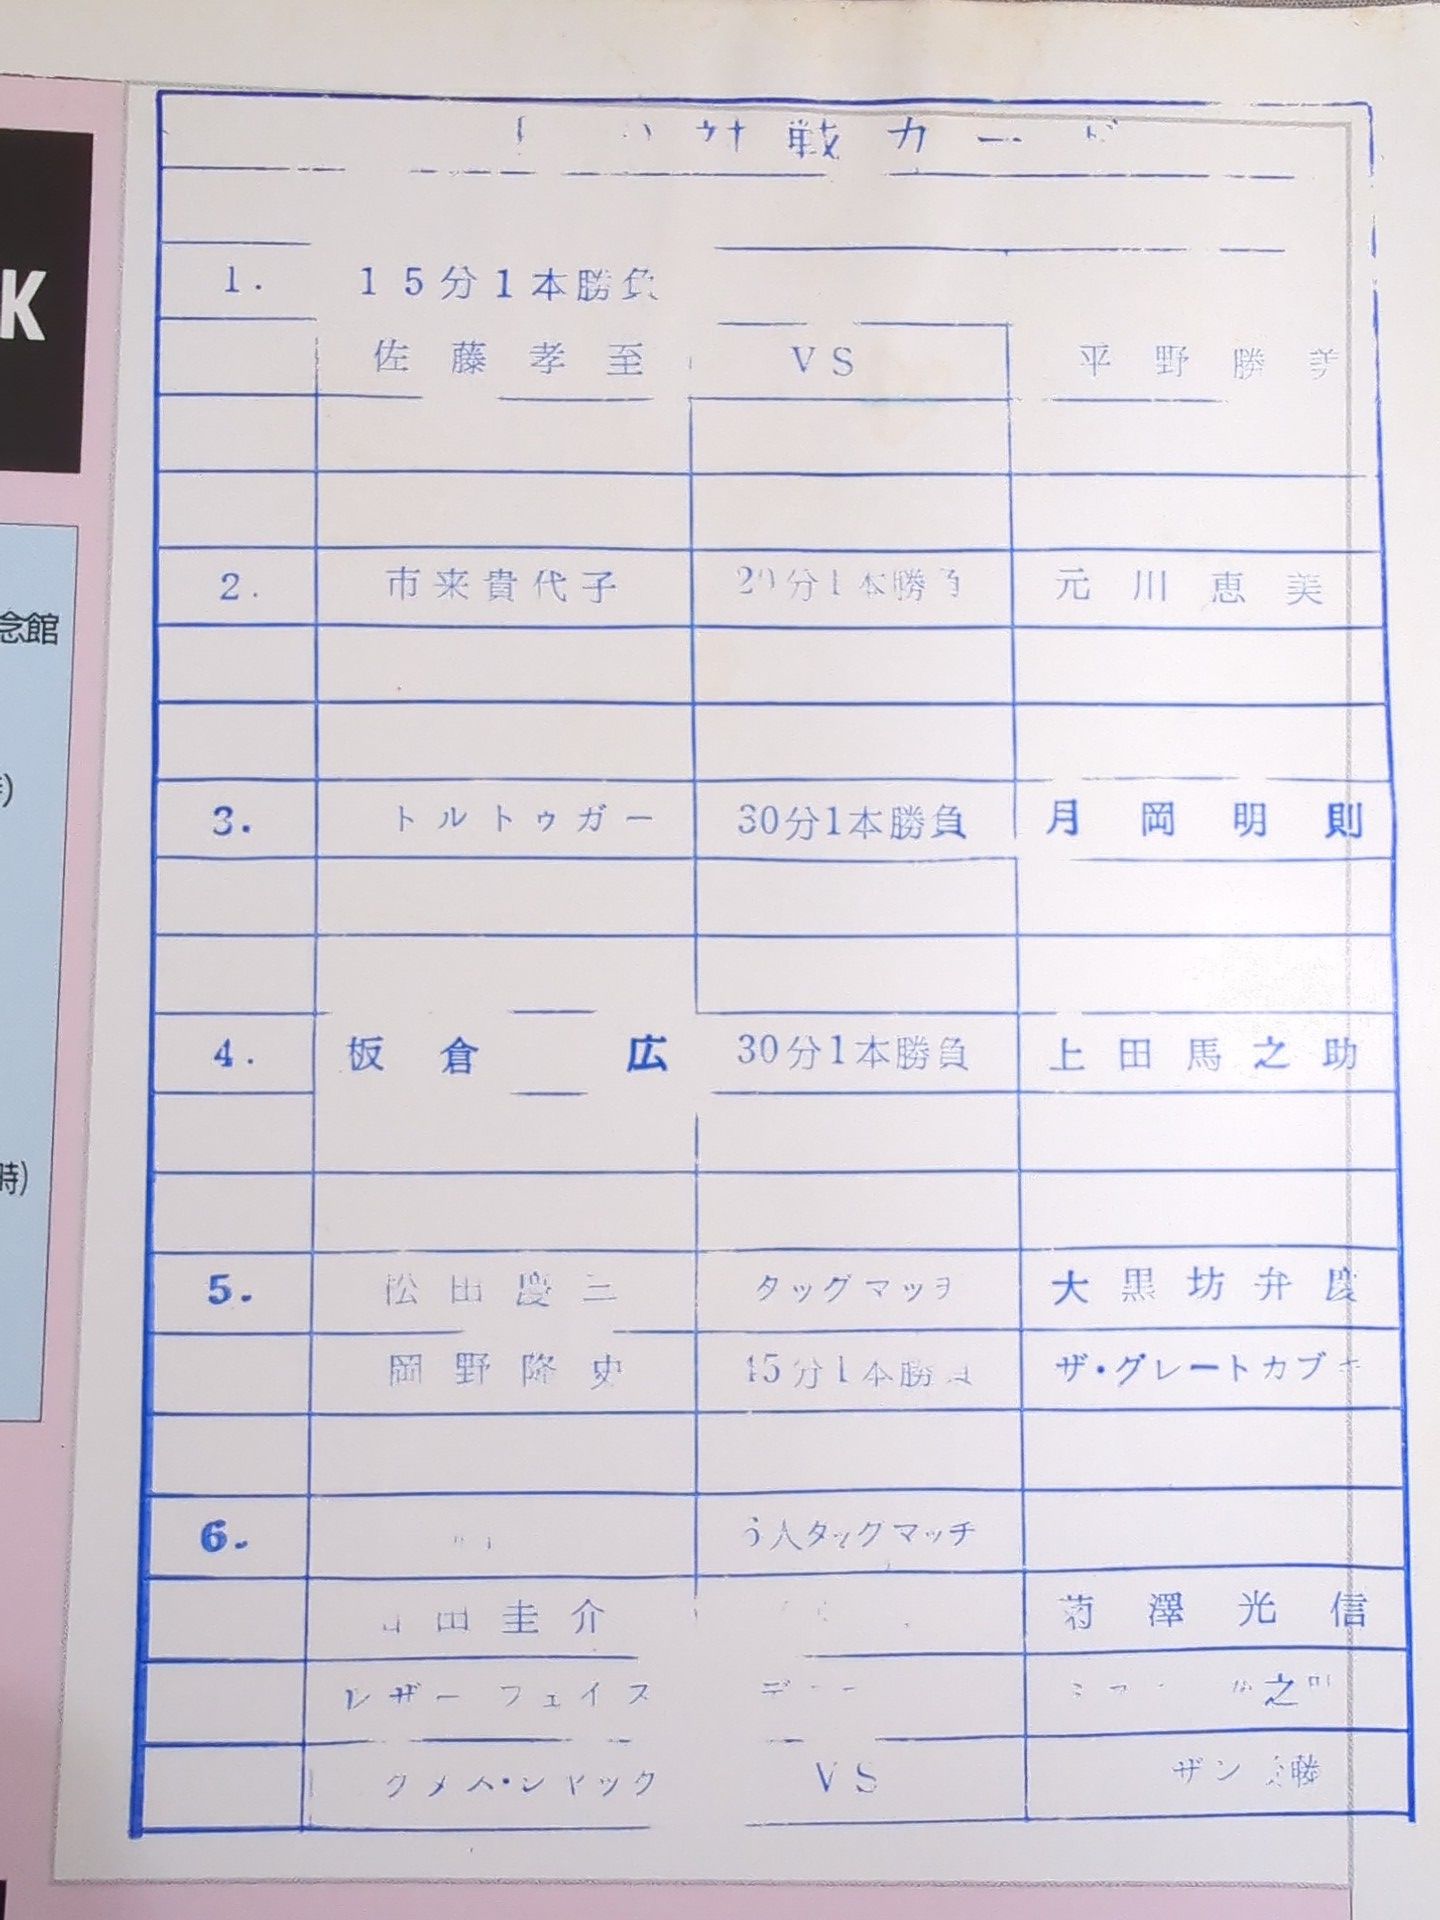 対戦カード
1. 15分1本勝負
佐藤孝至 VS 平野勝美
2. 市来貴代子 20分1本勝負 元川恵美
3. トルトゥガー 30分1本勝負 月岡明則
4. 板倉 広 30分1本勝負 上田馬之助
5. 松田慶三 タッグマッチ 大黒坊弁慶
岡野隆史 45分1本勝負 ザ・グレートカブキ
6. 6人タッグマッチ
田圭介 菊澤光信
レザーフェイス 之助
VS
K
念館
時)